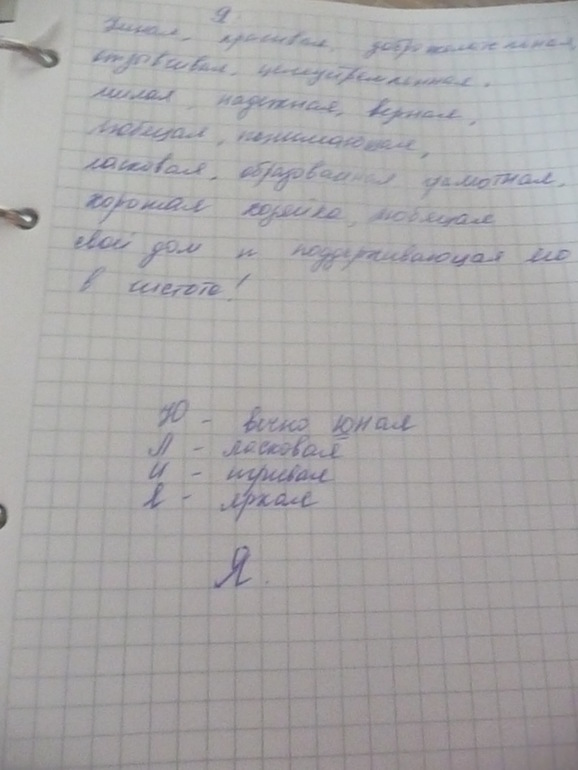 Я.
Умная, красивая, доброжелательная,
отзывчивая, целеустремленная,
милая, надежная, верная,
любящая, понимающая,
ласковая, образованная грамотная,
хорошая хозяйка, любящая
свой дом и поддерживающая его
в чистоте!
Ю - вечно юная
Л - ласковая
И - игривая
Я - яркая
Я.